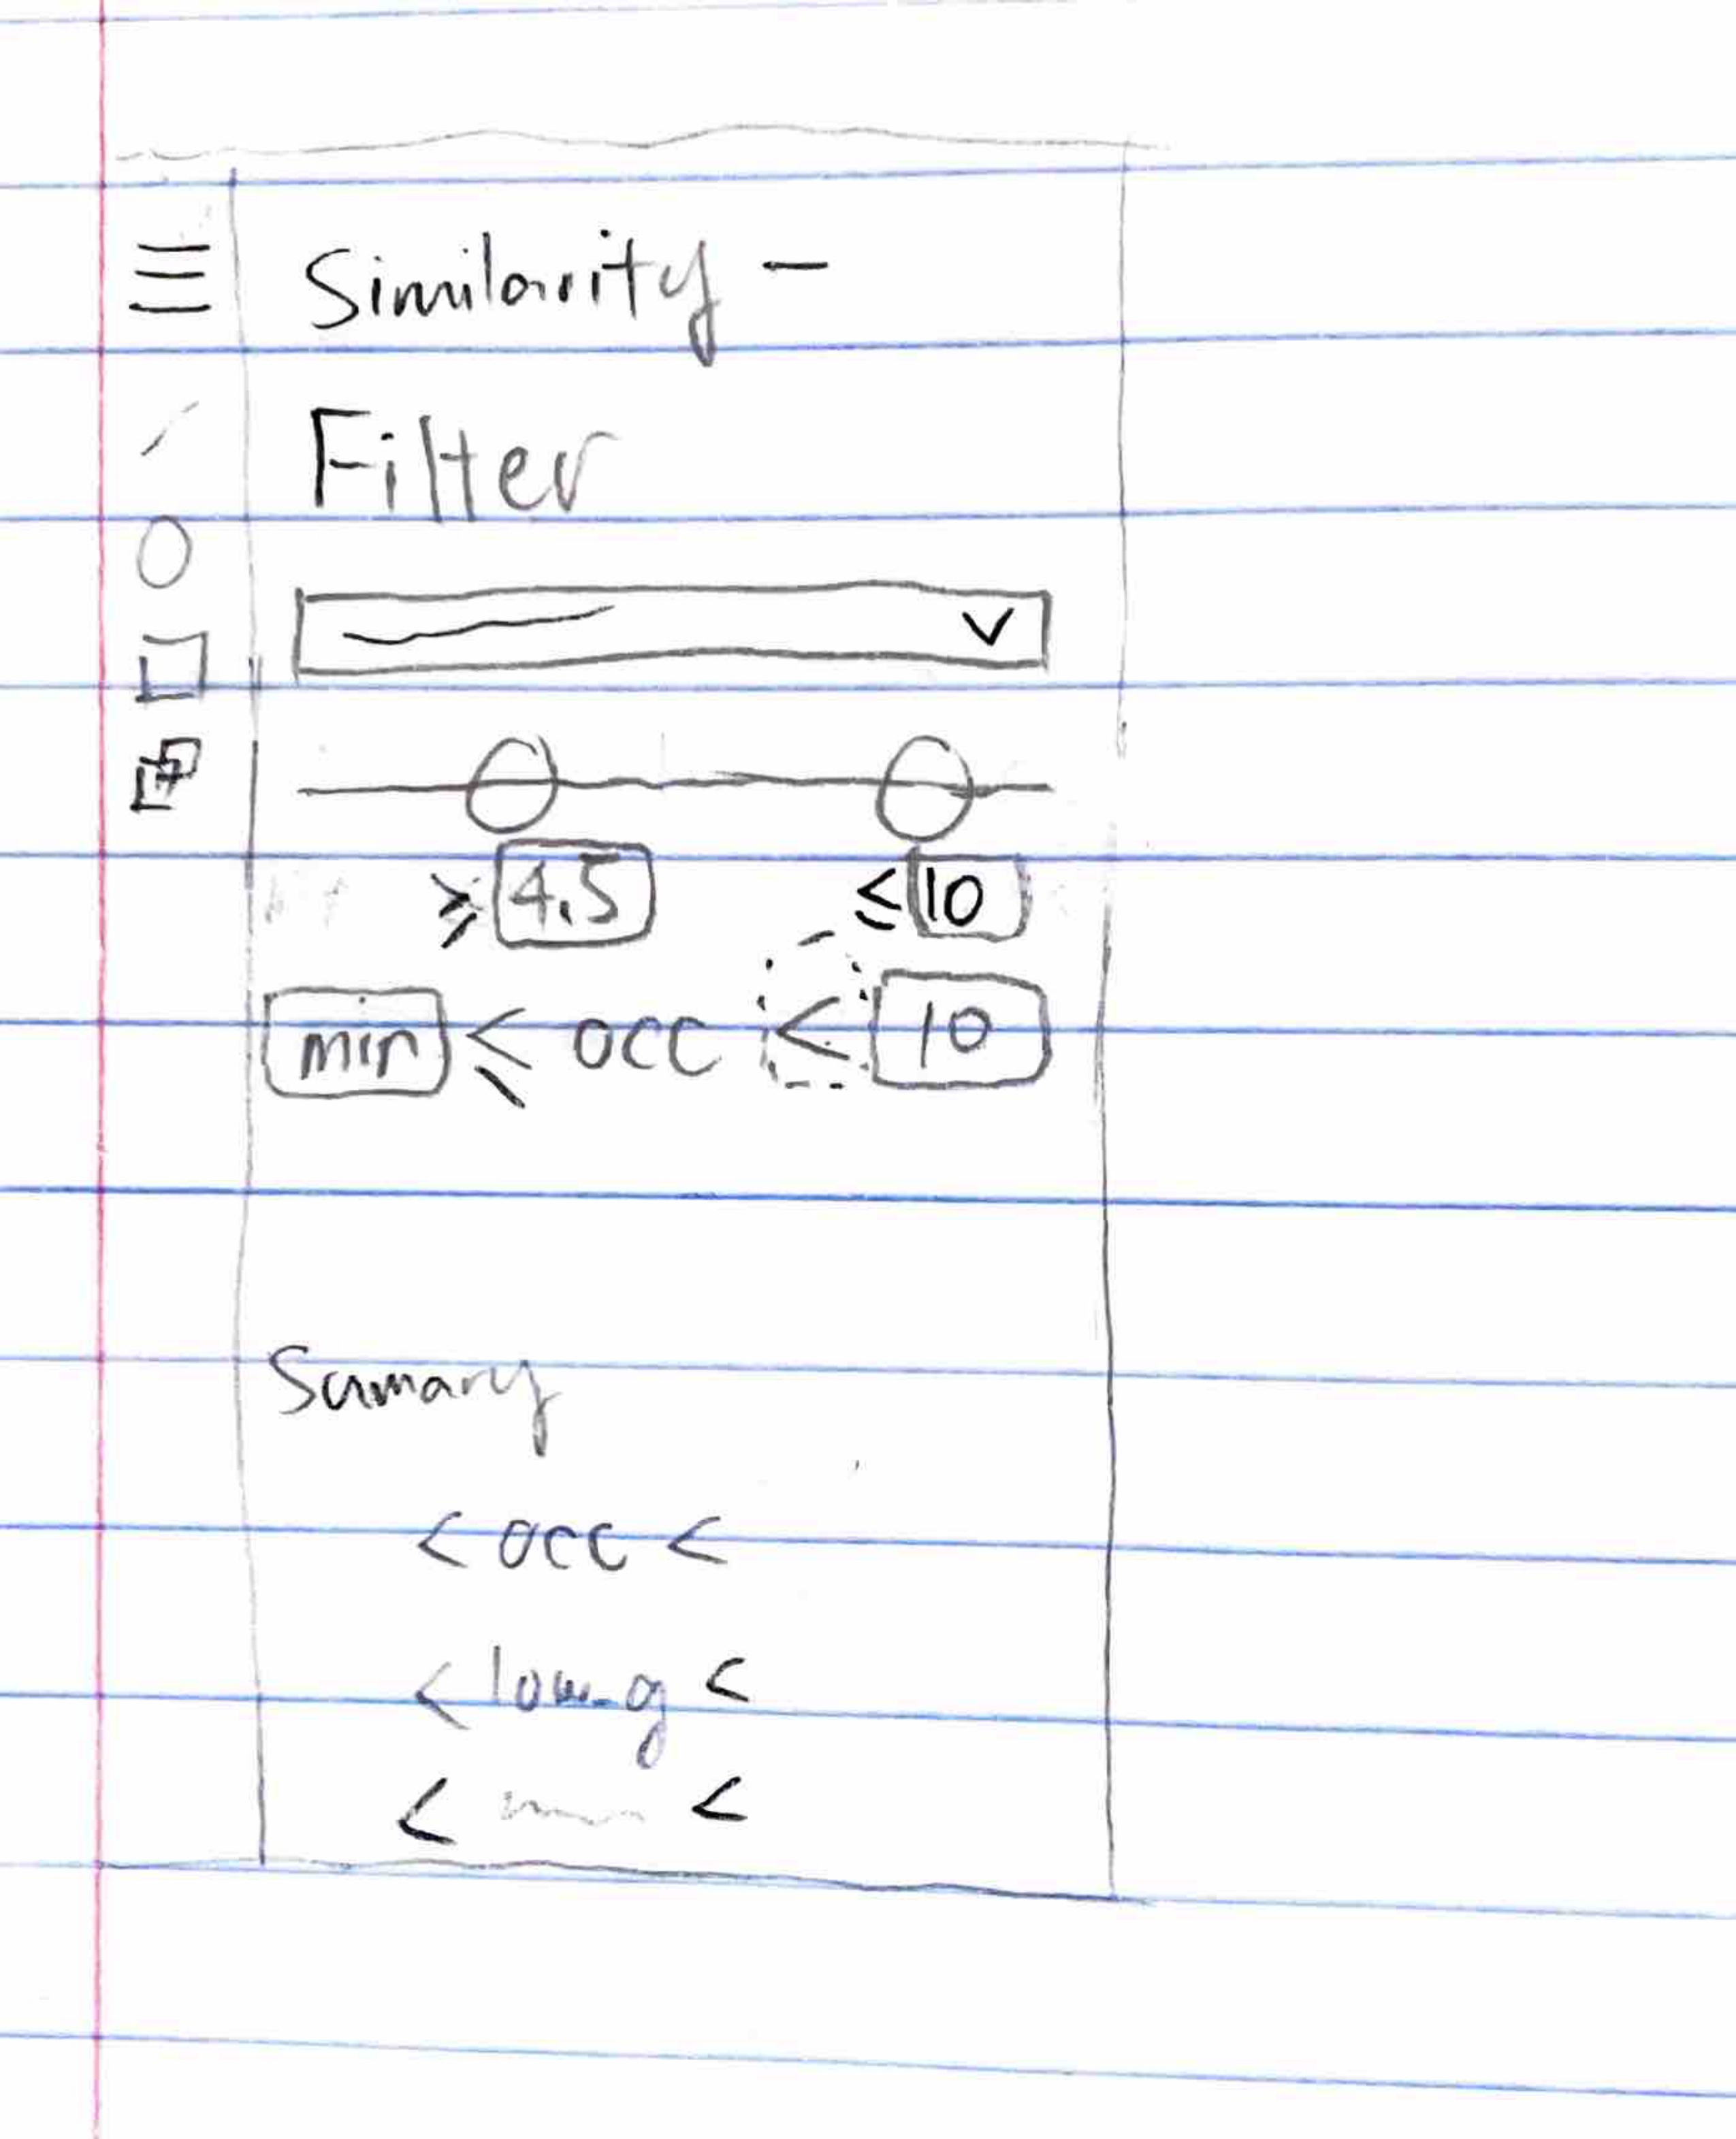 Similarity -
Filter
≥ 4.5 ≤ 10
min ≤ occ < 10
Sumary
< occ <
< <
< <